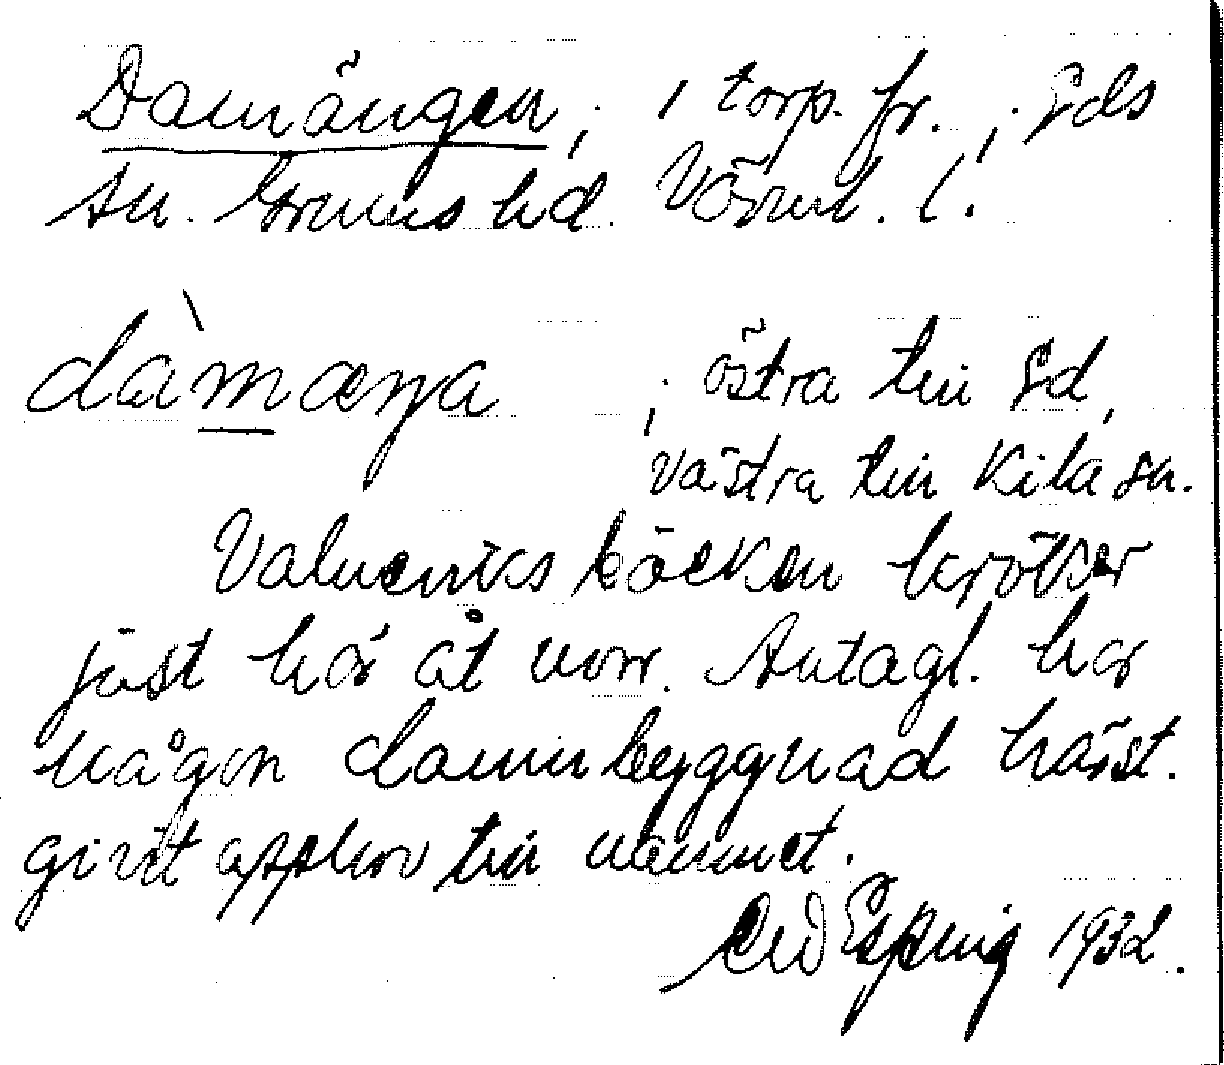 Damängen, 1 torp. fr., Eds
sn. Grums hd. Värml. l.
dàmæŋa ; östra till Ed,
västra till Kila sn.
Valneviksbäcken kröker
just här åt norr. Antagl. har
någon dammbyggnad härst.
givit upphov till namnet.
1932.